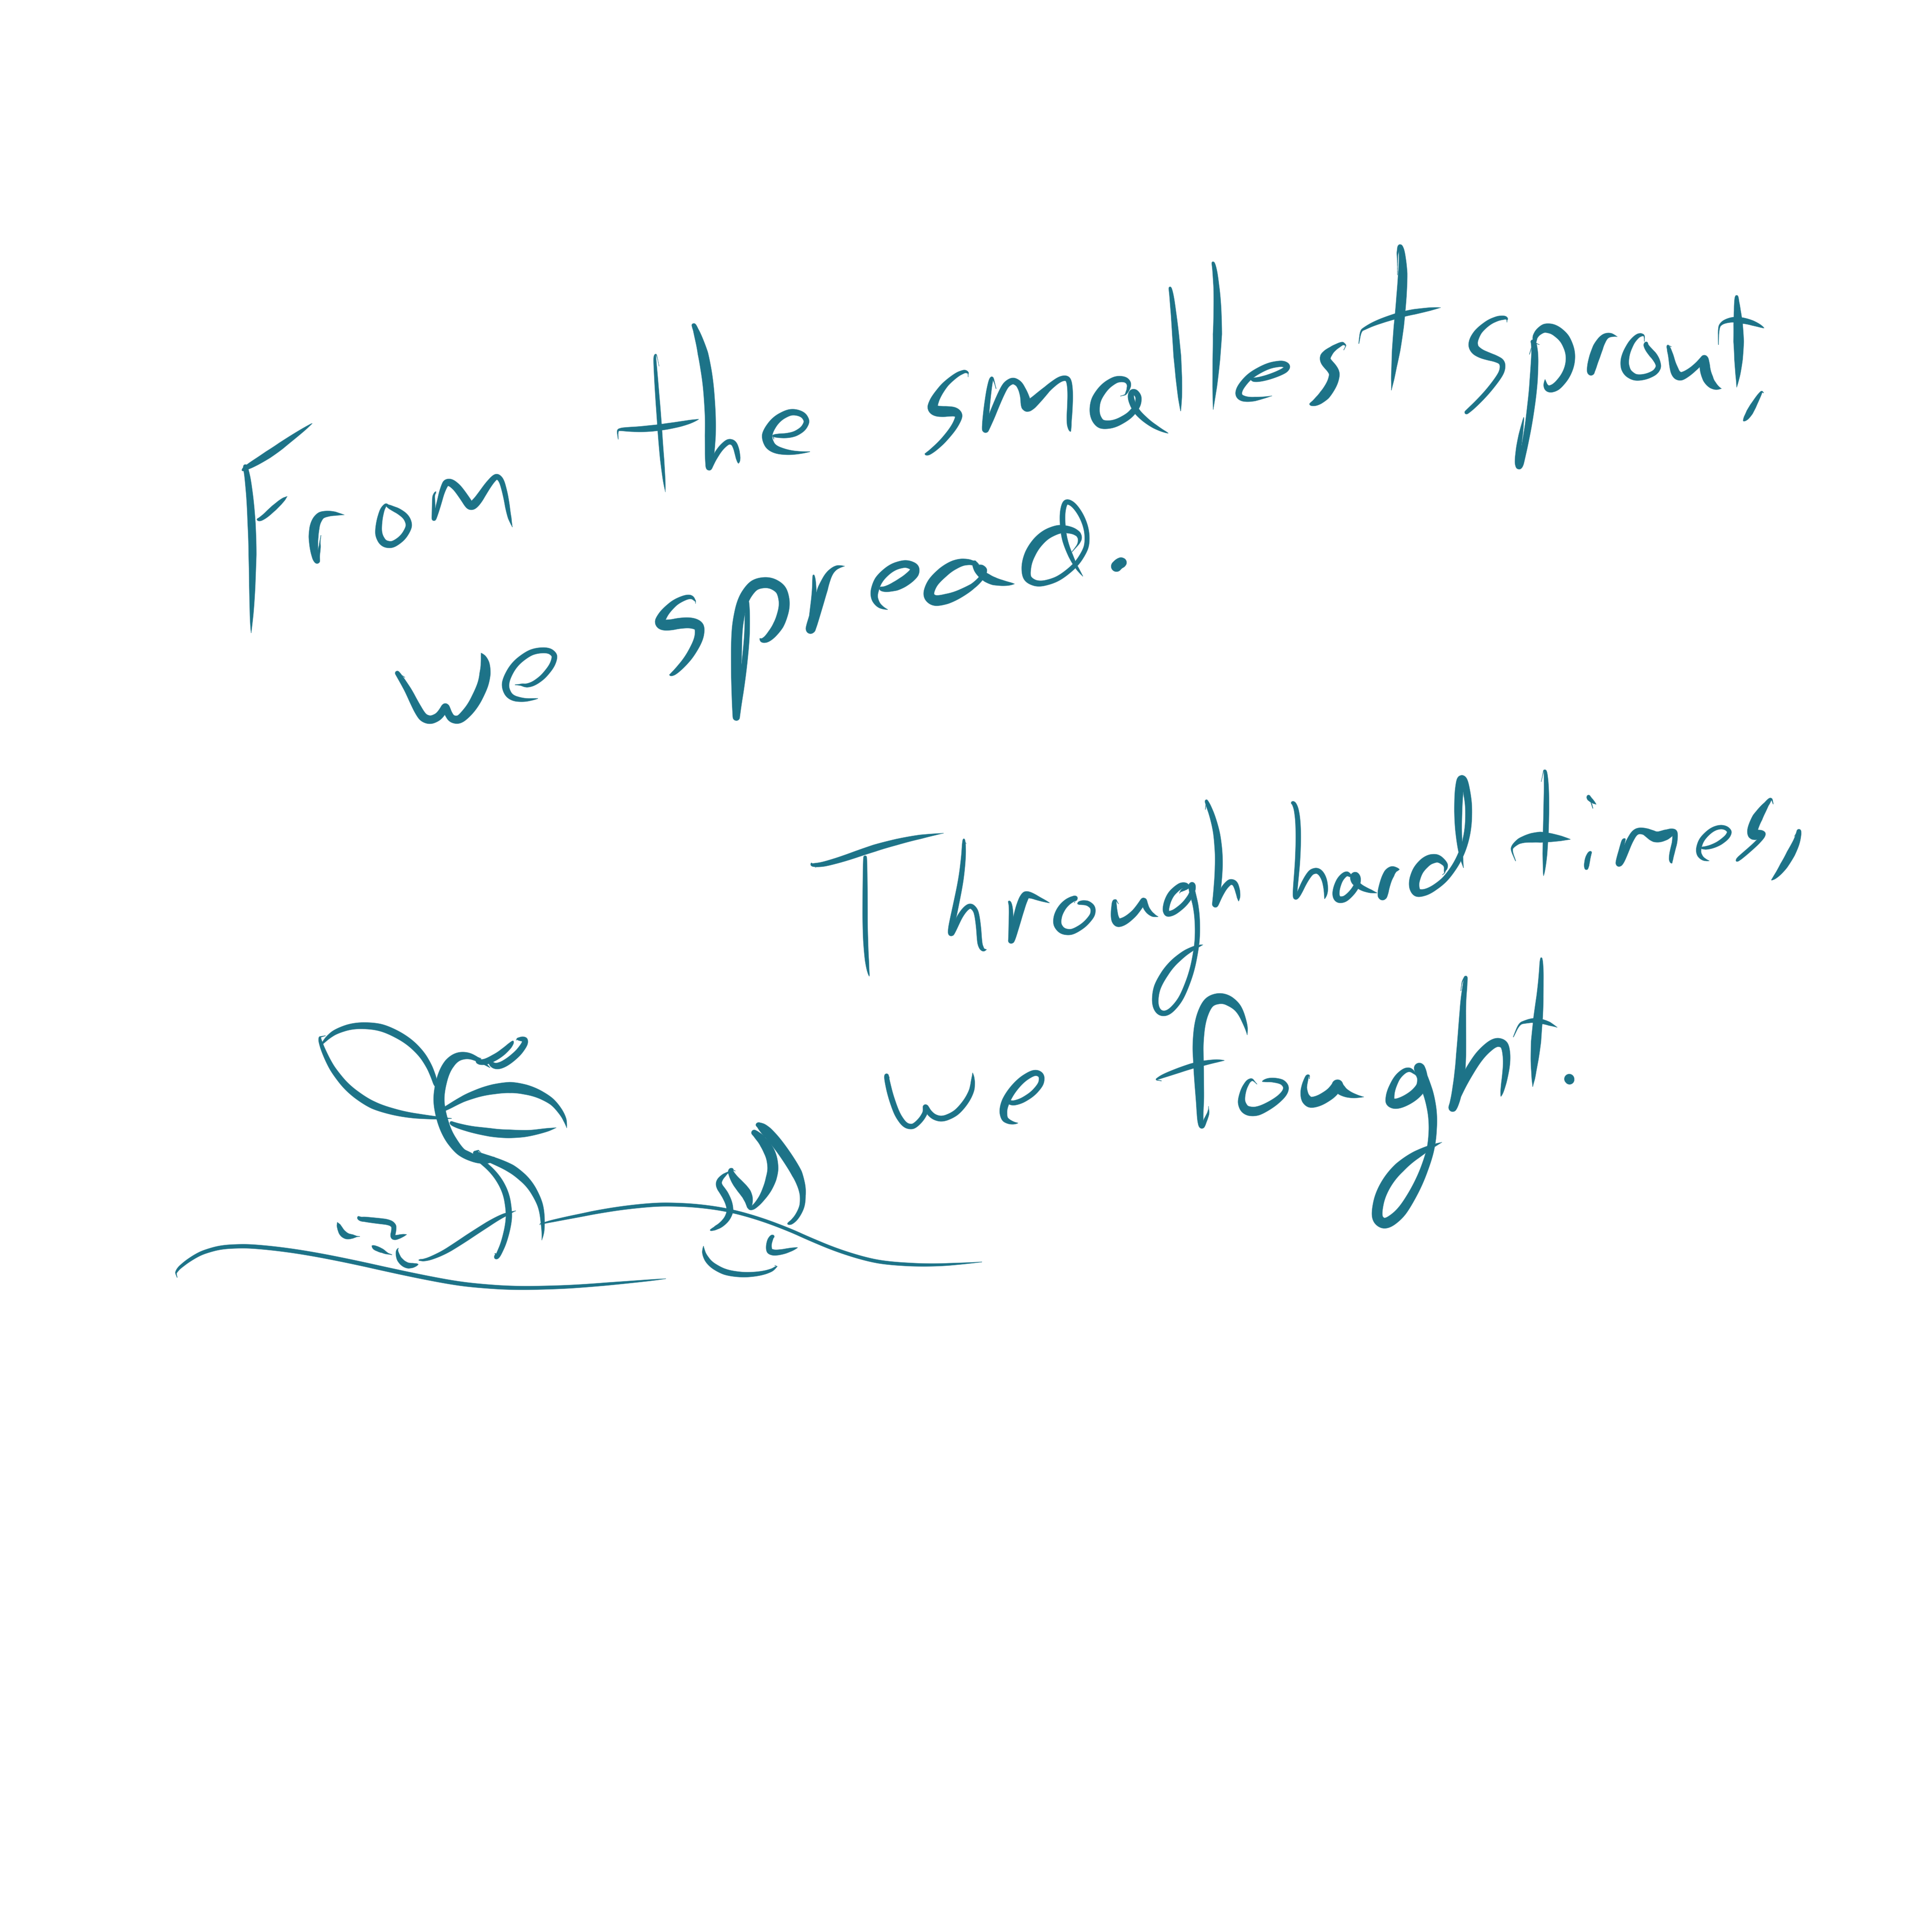 From the smallest sprout,
we spread.
Through hard times,
we fought.